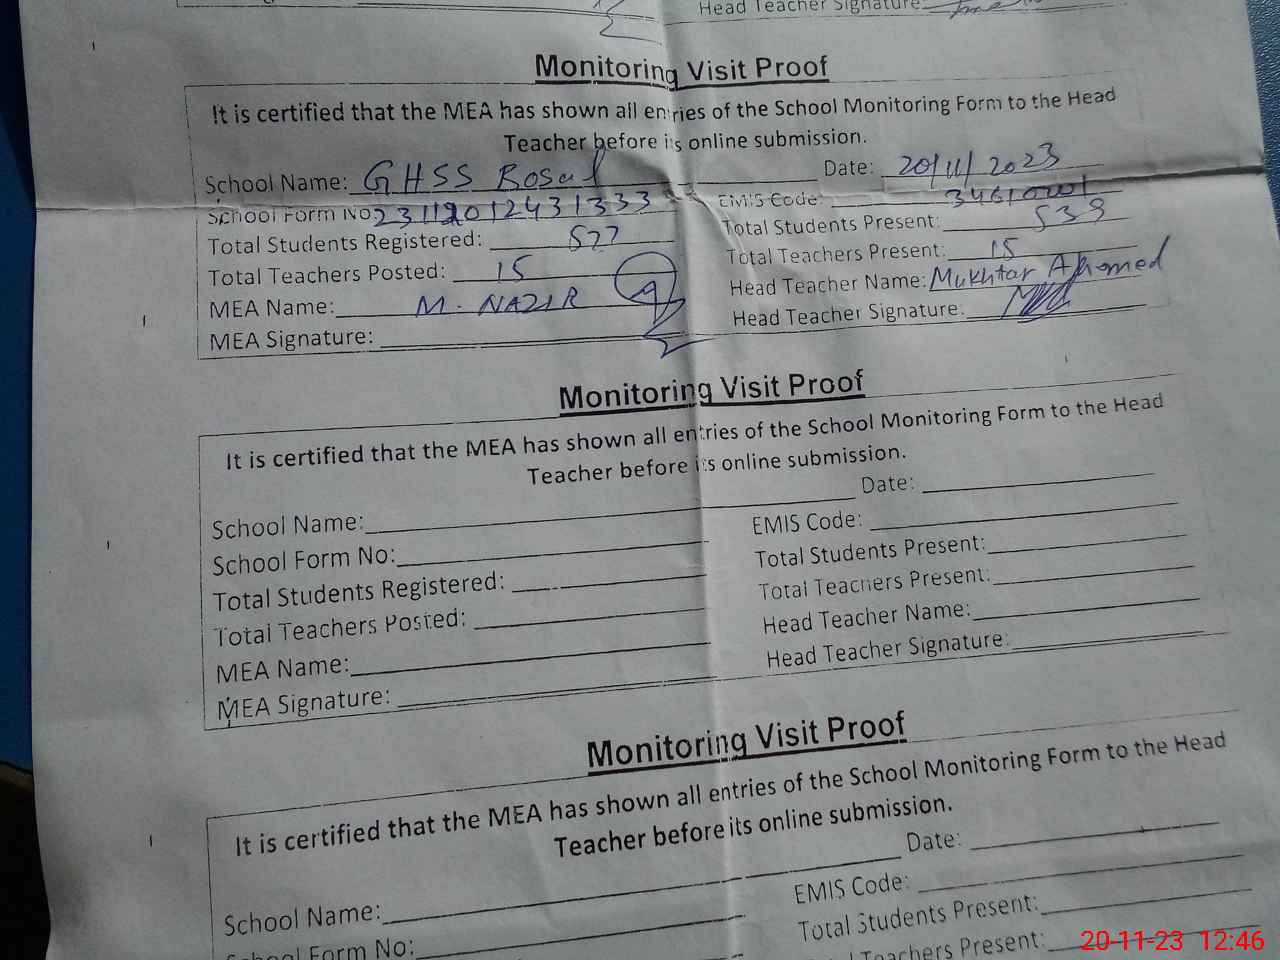 Head Teacher Signature:
Monitoring Visit Proof
It is certified that the MEA has shown all entries of the School Monitoring Form to the Head
Teacher before its online submission.
School Name: GHSS Bosal Date: 20/11/2023
School Form No: 23112012431333 EMIS Code:
Total Students Registered: 577 Total Students Present: 533
Total Teachers Posted: 15 Total Teachers Present: 15
MEA Name: M. NAZIR Head Teacher Name: Mukhtar Ahmed
MEA Signature: Head Teacher Signature:
Monitoring Visit Proof
It is certified that the MEA has shown all entries of the School Monitoring Form to the Head
Teacher before its online submission.
School Name: Date:
School Form No: EMIS Code:
Total Students Registered: Total Students Present:
Total Teachers Posted: Total Teachers Present:
MEA Name: Head Teacher Name:
MEA Signature: Head Teacher Signature:
Monitoring Visit Proof
It is certified that the MEA has shown all entries of the School Monitoring Form to the Head
Teacher before its online submission.
Date:
School Name: EMIS Code:
School Form No: Total Students Present:
Teachers Present:
20-11-23 12:46